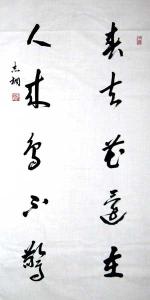 春去花還在
人來鳥不驚